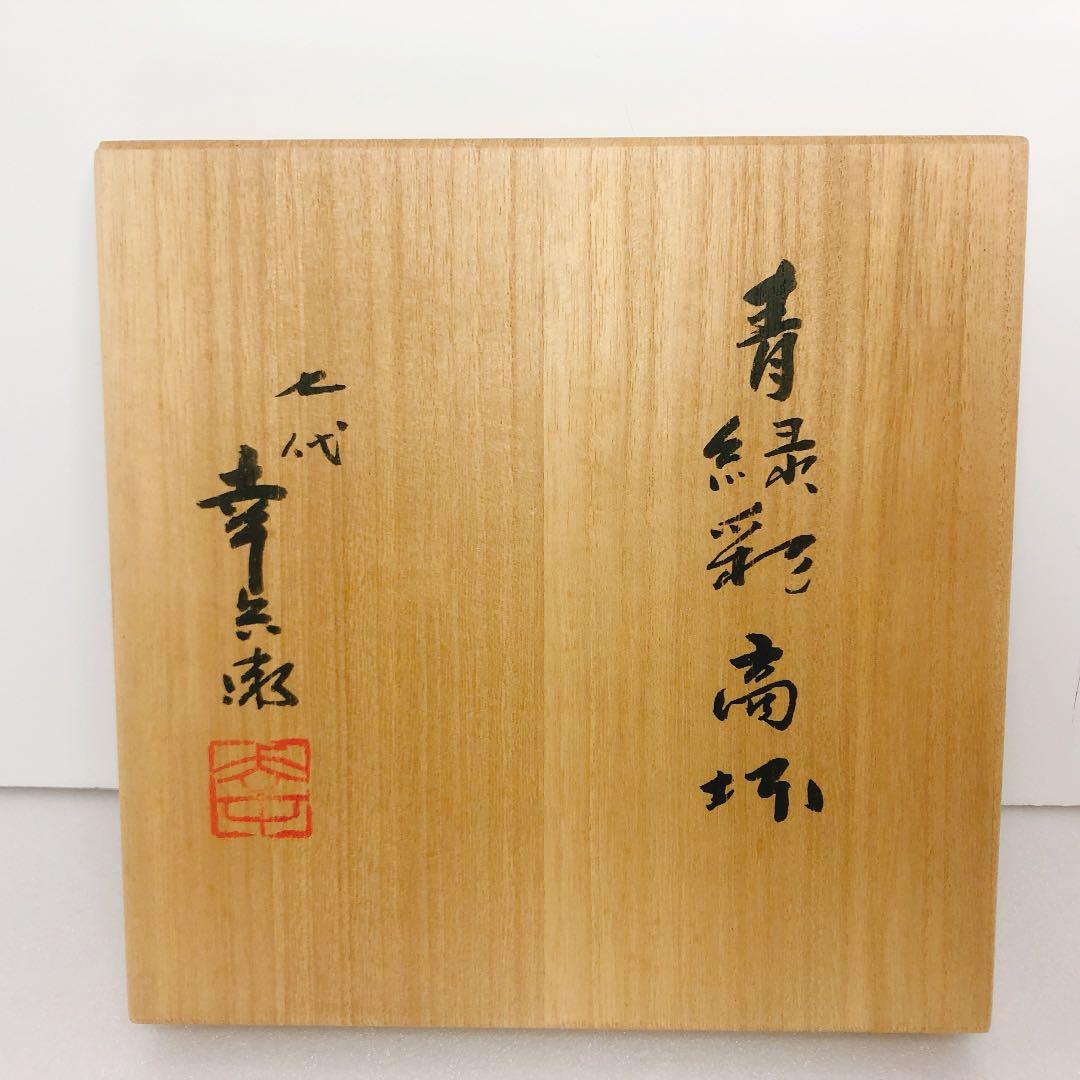 青緑彩高坏
七代
幸兵衛